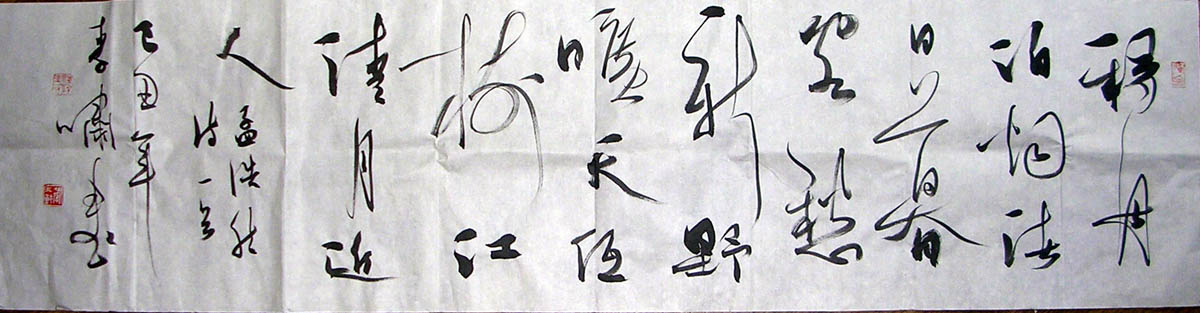 移舟
泊烟渚
日暮
客愁
新野
曠天低
树江
清月近
人
孟浩然
诗一首
己丑年
李嘯